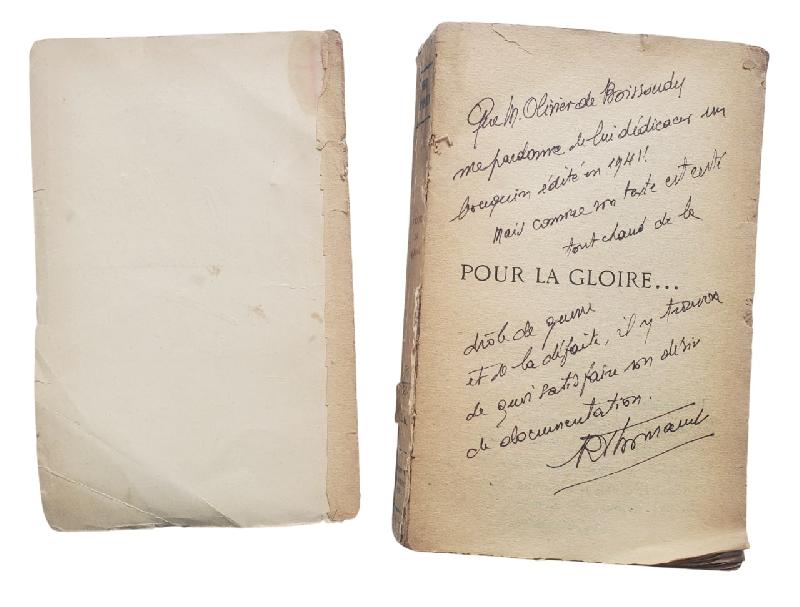 Que M. Olivier de Boissoudy
me pardonne de lui dédicacer un
bouquin édité en 1941!
Mais comme son texte est resté
tout chaud de la
POUR LA GLOIRE...
drôle de guerre
et de la défaite, il y trouvera
de quoi satisfaire son désir
de documentation.